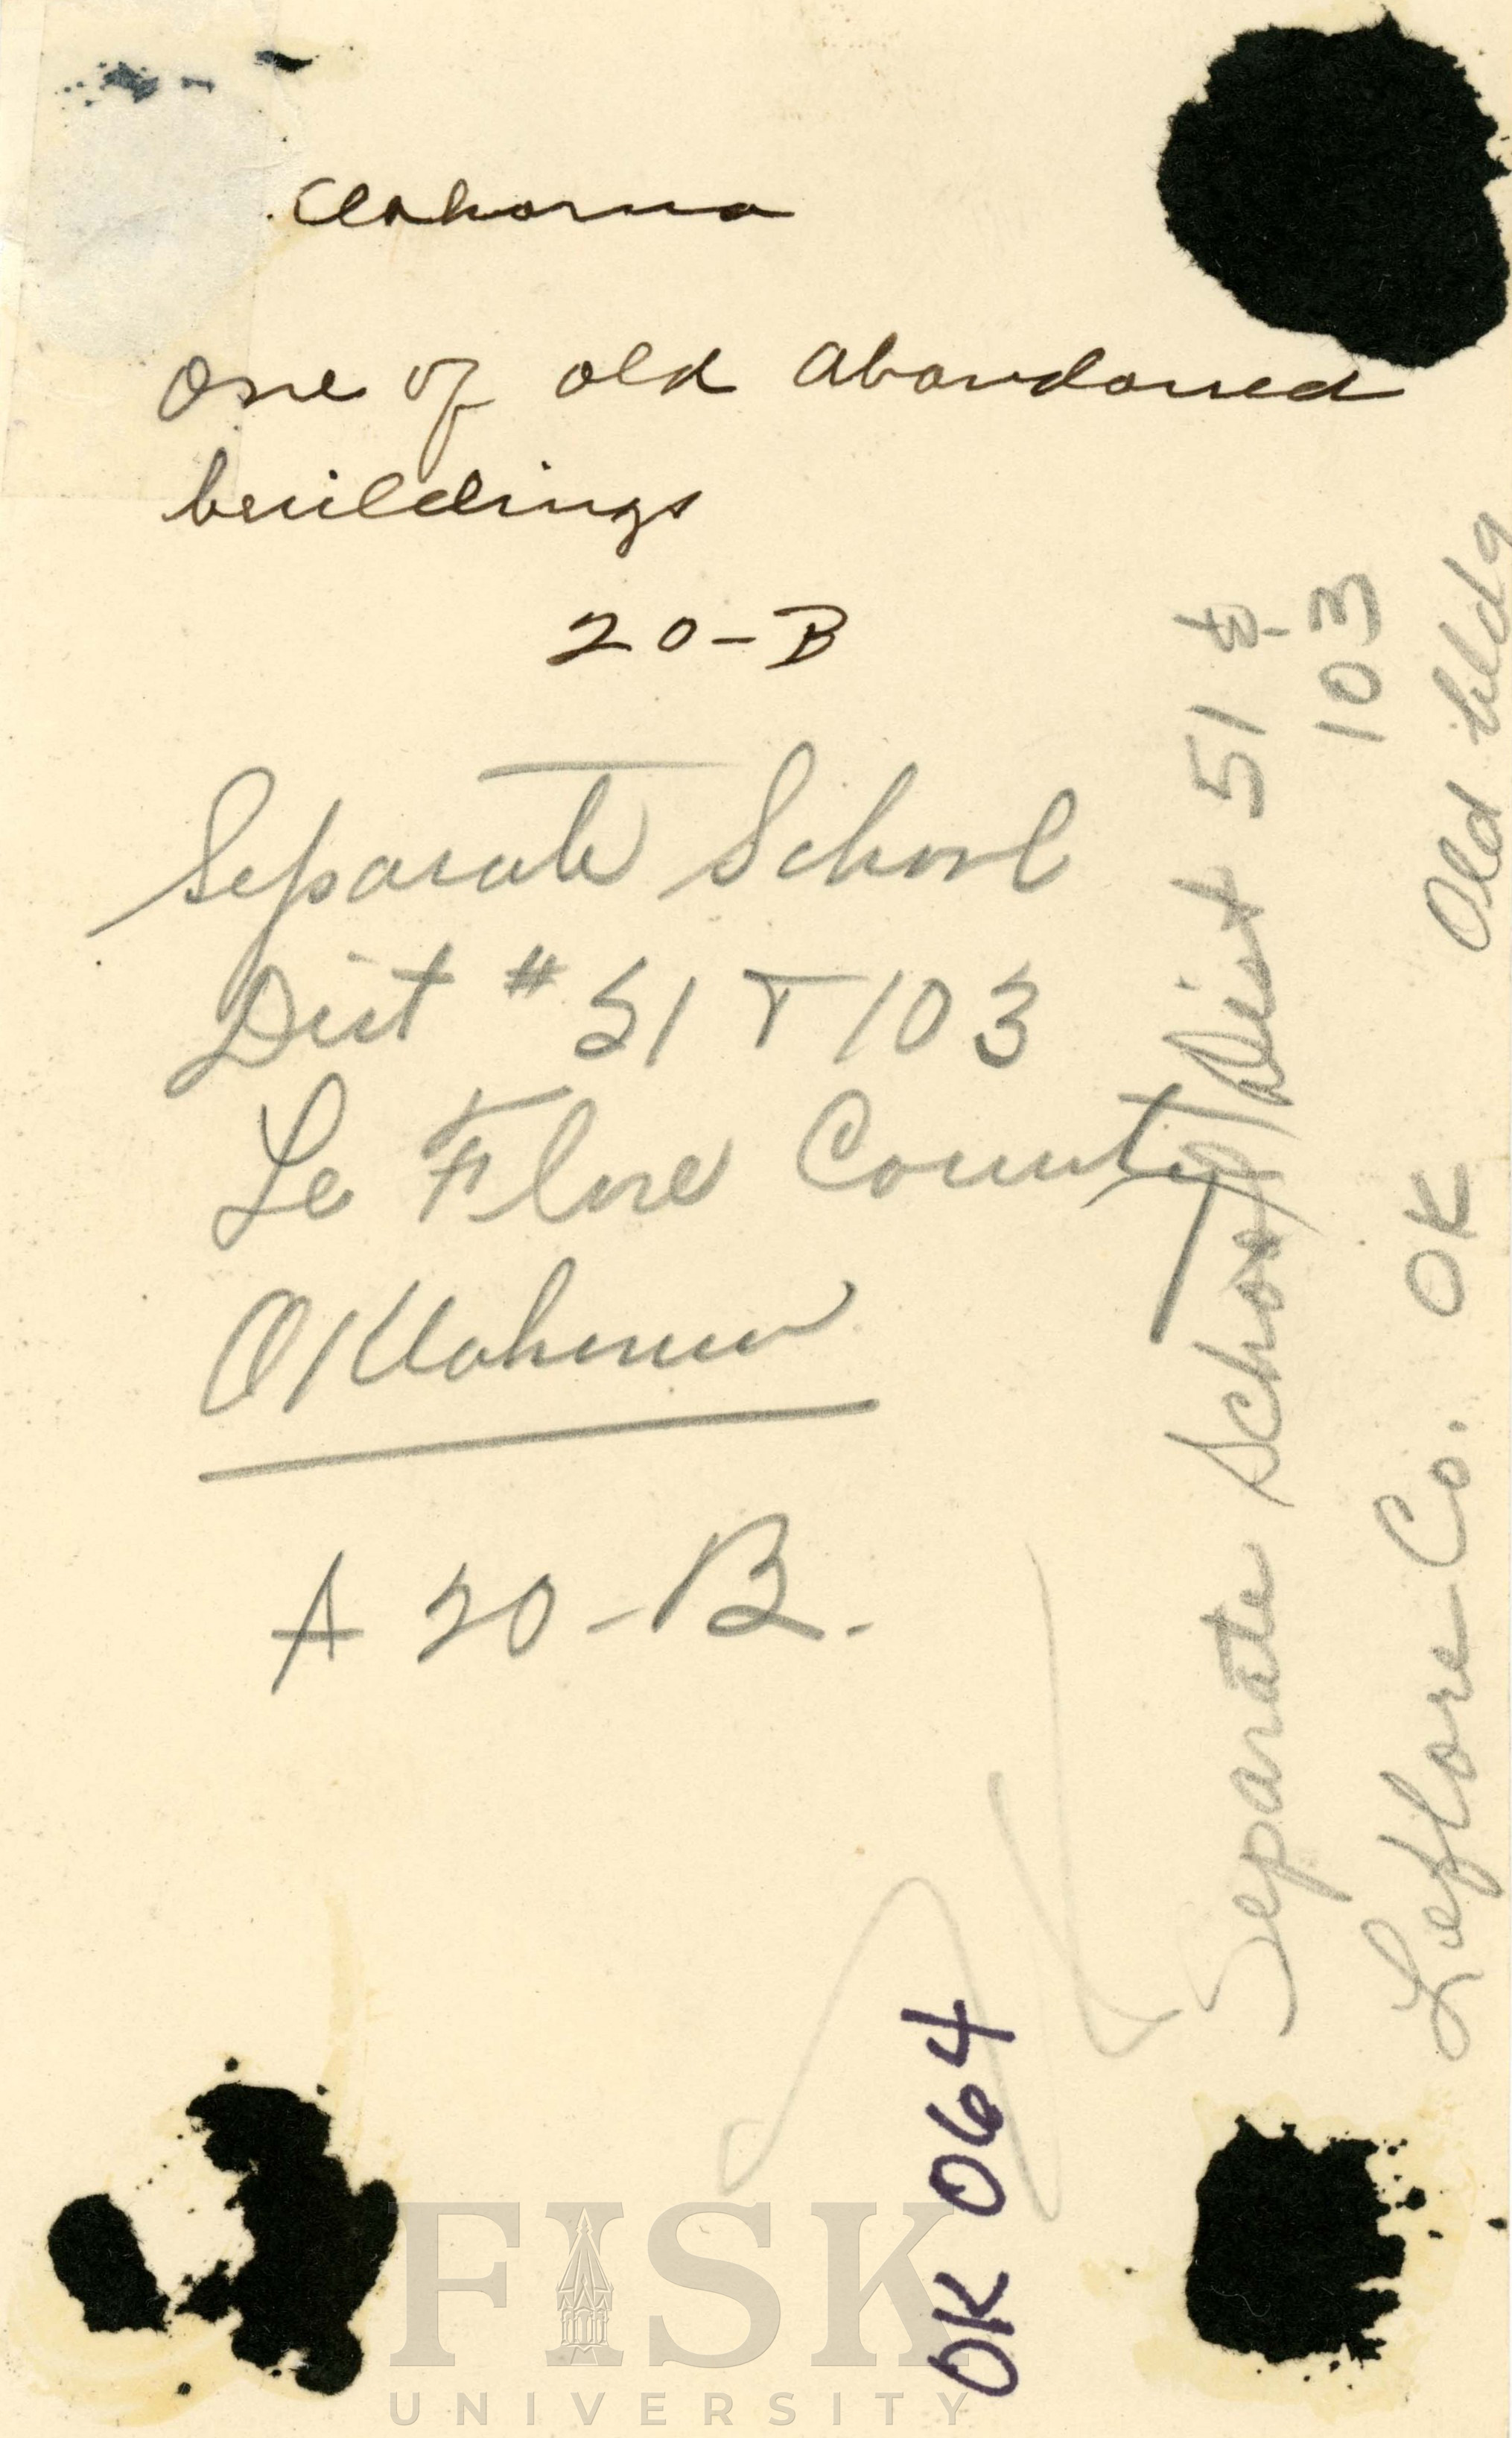 Clahoma
One of old abandoned
buildings
20-B
Separate School
Dist # 51 & 103
Le Flore County
OKlahoma
A 20-B.
Separate School Dist 51 &
103
Leflore Co. OK Old bldg
OK 064
FISK
UNIVERSITY